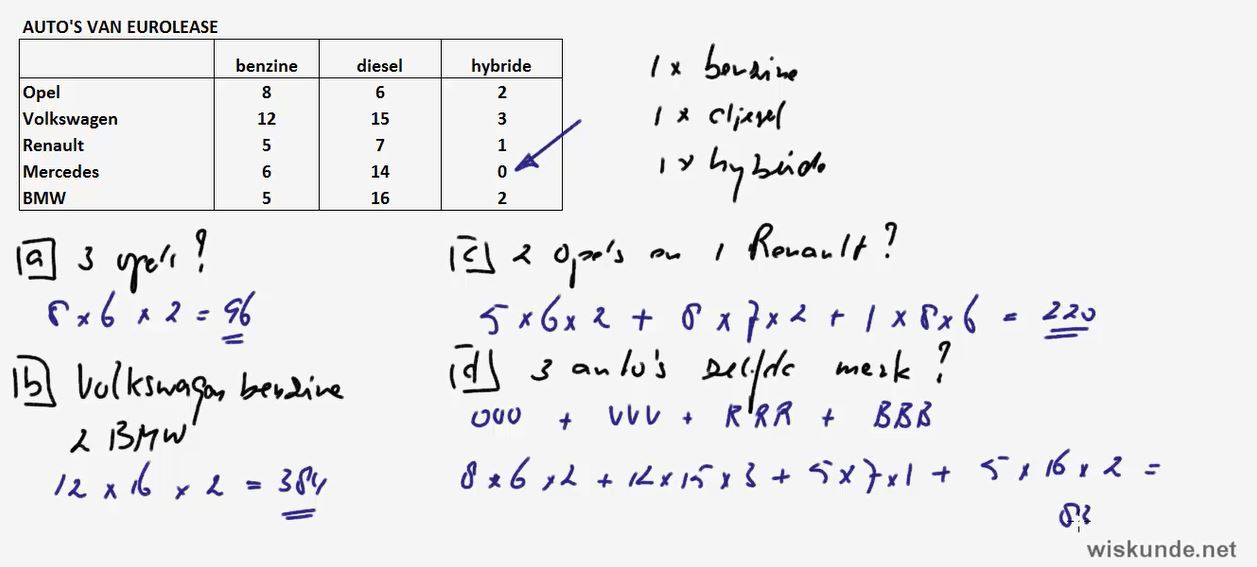 AUTO'S VAN EUROLEASE
benzine diesel hybride
Opel 8 6 2
Volkswagen 12 15 3
Renault 5 7 1
Mercedes 6 14 0
BMW 5 16 2
1 x benzine
1 x diesel
1 x hybride
a 3 opels?
8 x 6 x 2 = 96
b Volkswagen benzine
2 BMW
12 x 16 x 2 = 384
c 2 Opel's en 1 Renault?
5 x 6 x 2 + 8 x 7 x 2 + 1 x 8 x 6 = 220
d 3 auto's zelfde merk?
OOO + VVV + RRR + BBB
8 x 6 x 2 + 12 x 15 x 3 + 5 x 7 x 1 + 5 x 16 x 2 =
83
wiskunde.net